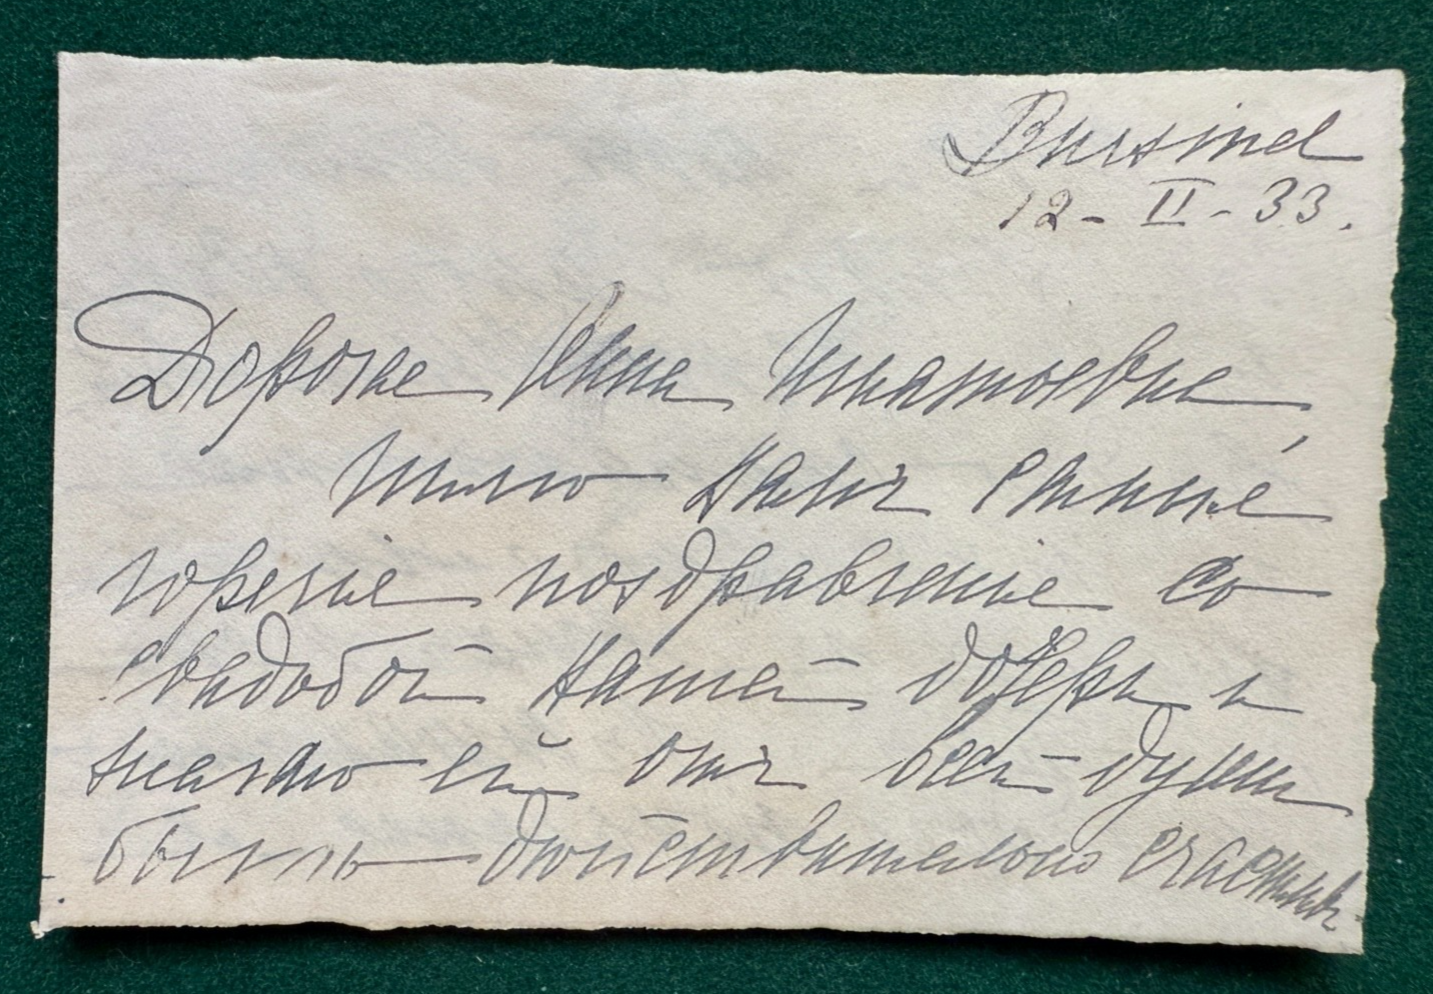 Bursinel
12-II-33.
Дорогая Анна Игнатьевна,
Шлю Вамъ самые
горячие поздравление со
свадьбой Вашей дочери и
желаю ей отъ всей души
быть действительно счастлив-